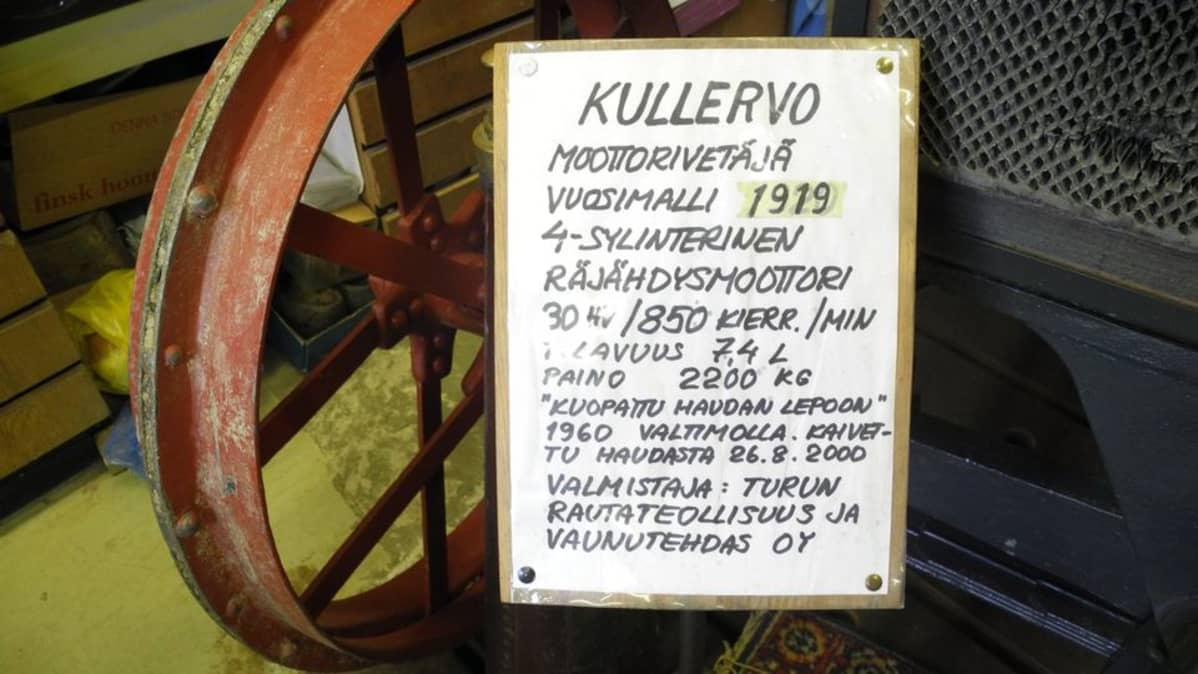 KULLERVO
MOOTTORIVETÄJÄ
VUOSIMALLI 1919
4-SYLINTERINEN
RÄJÄHDYSMOOTTORI
30 HV /850 KIERR./MIN
T.LAVUUS 7,4 L
PAINO 2200 KG
"KUOPATTU HAUDAN LEPOON"
1960 VALTIMOLLA. KAIVET-
TU HAUDASTA 26.8.2000
VALMISTAJA: TURUN
RAUTATEOLLISUUS JA
VAUNUTEHDAS OY
DENNA
finsk